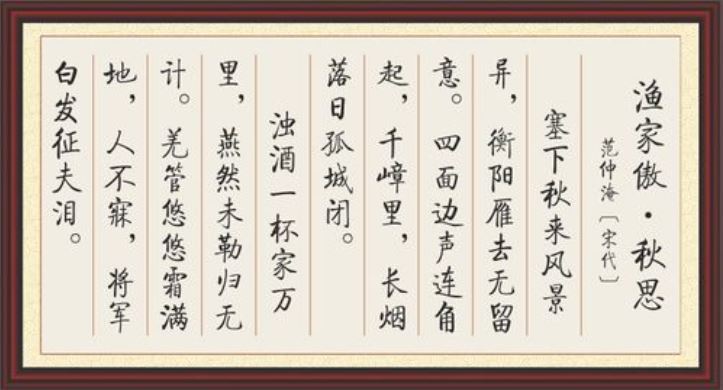 渔家傲·秋思
范仲淹〔宋代〕
塞下秋来风景
异，衡阳雁去无留
意。四面边声连角
起，千嶂里，长烟
落日孤城闭。
浊酒一杯家万
里，燕然未勒归无
计。羌管悠悠霜满
地，人不寐，将军
白发征夫泪。